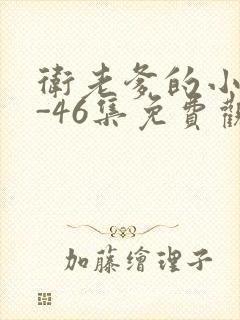 衛老爹的小
-46集免費觀
加藤繪理子